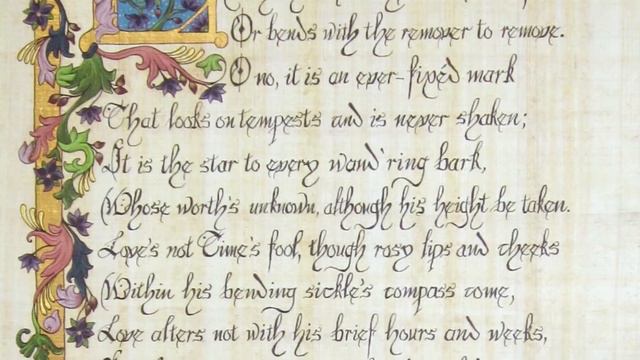 Or bends with the remover to remove.
O no, it is an ever-fixèd mark
That looks on tempests and is never shaken;
It is the star to every wand'ring bark,
Whose worth's unknown, although his height be taken.
Love's not Time's fool, though rosy lips and cheeks
Within his bending sickle's compass come,
Love alters not with his brief hours and weeks,